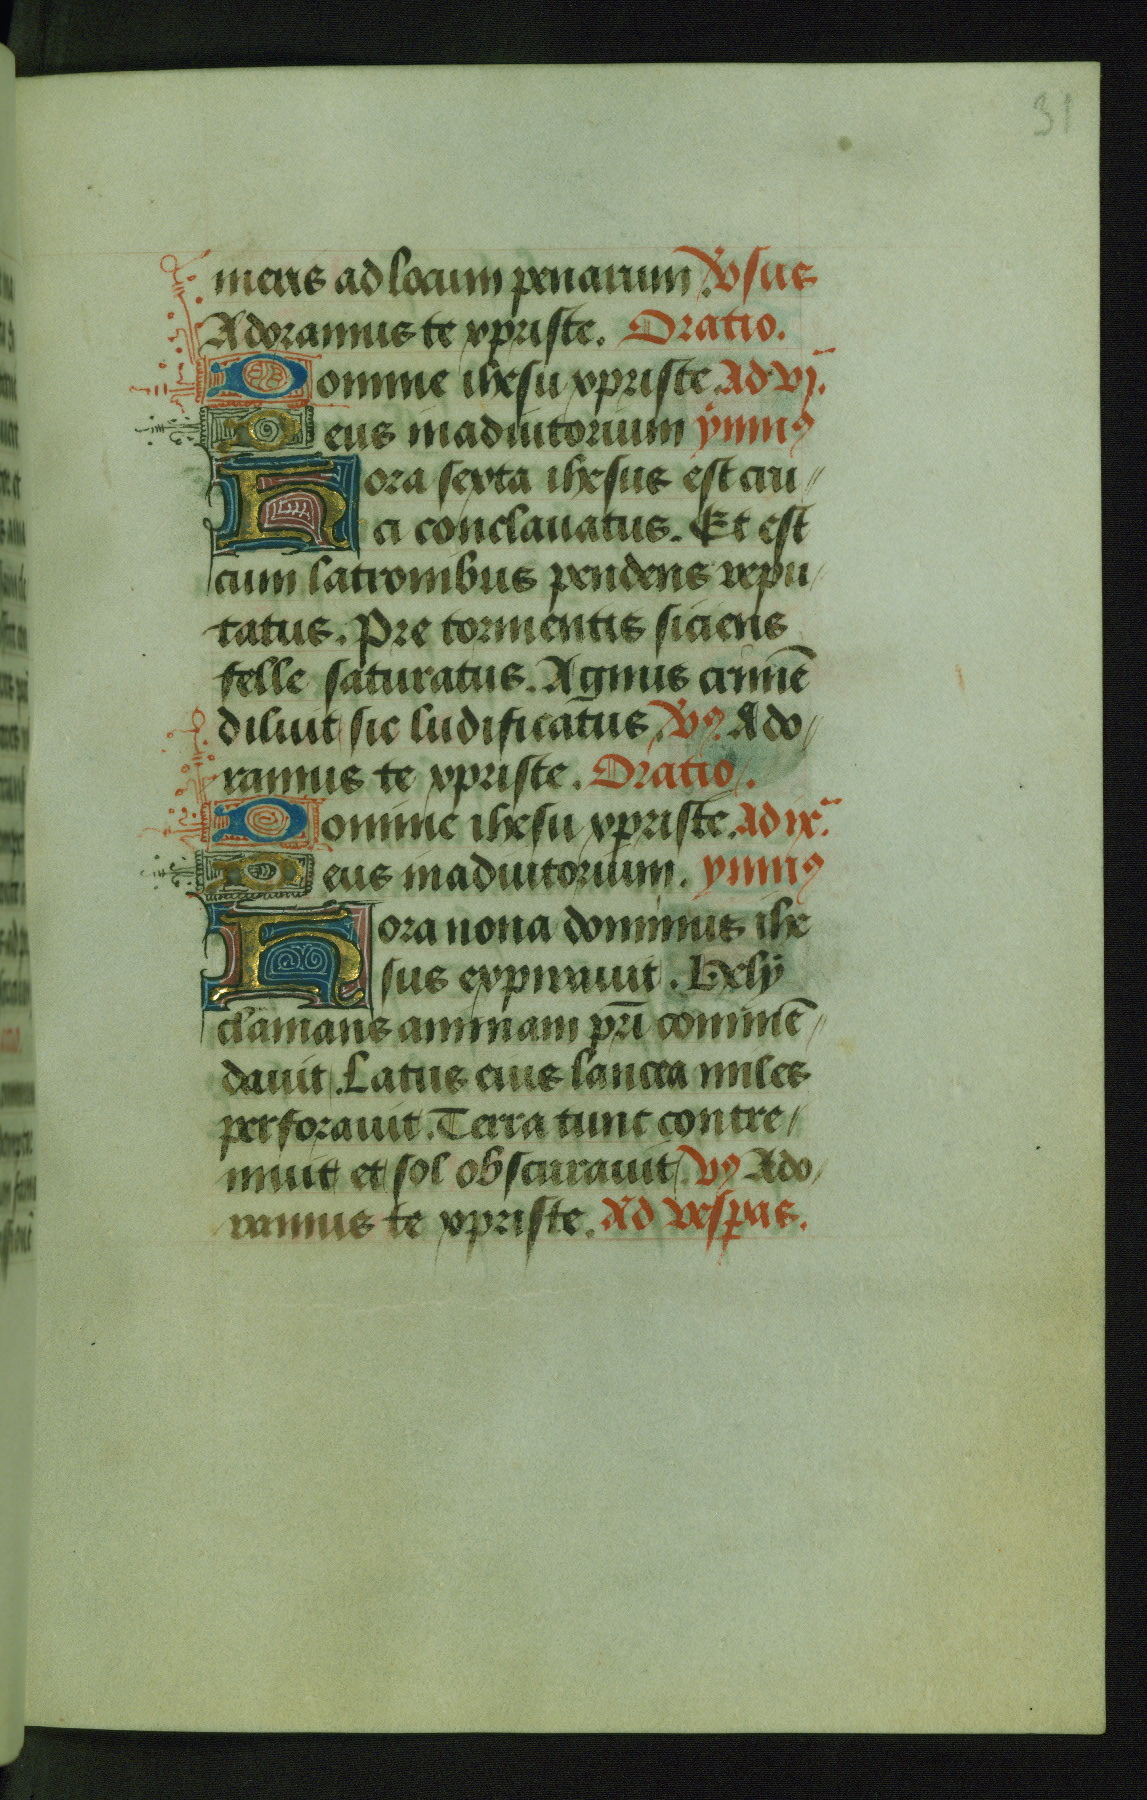 31
meris ad locum penarum. v̄sus
Adoramus te xpriste. Oratio.
Domine ihesu xpriste. Ad vj.
Deus in adiutorium ymnꝰ
Hora sexta ihesus est cru
ci conclauatus. Et est
cum latronibus pendens repu
tatus. Pre tormentis siciens
felle saturatus. Agnus crimē
diluit sic ludificatus. Vꝰ. Ado
ramus te xpriste. Oratio.
Domine ihesu xpriste. Ad ix.
Deus in adiutorium. ymnꝰ
Hora nona dominus ihe
sus expirauit. Hely
clamans animam pr̄i commē
dauit. Latus eius lancea miles
perforauit. Terra tunc contre
muit et sol obscurauit. Vꝰ Ado
ramus te xpriste. Ad vesp̄as.